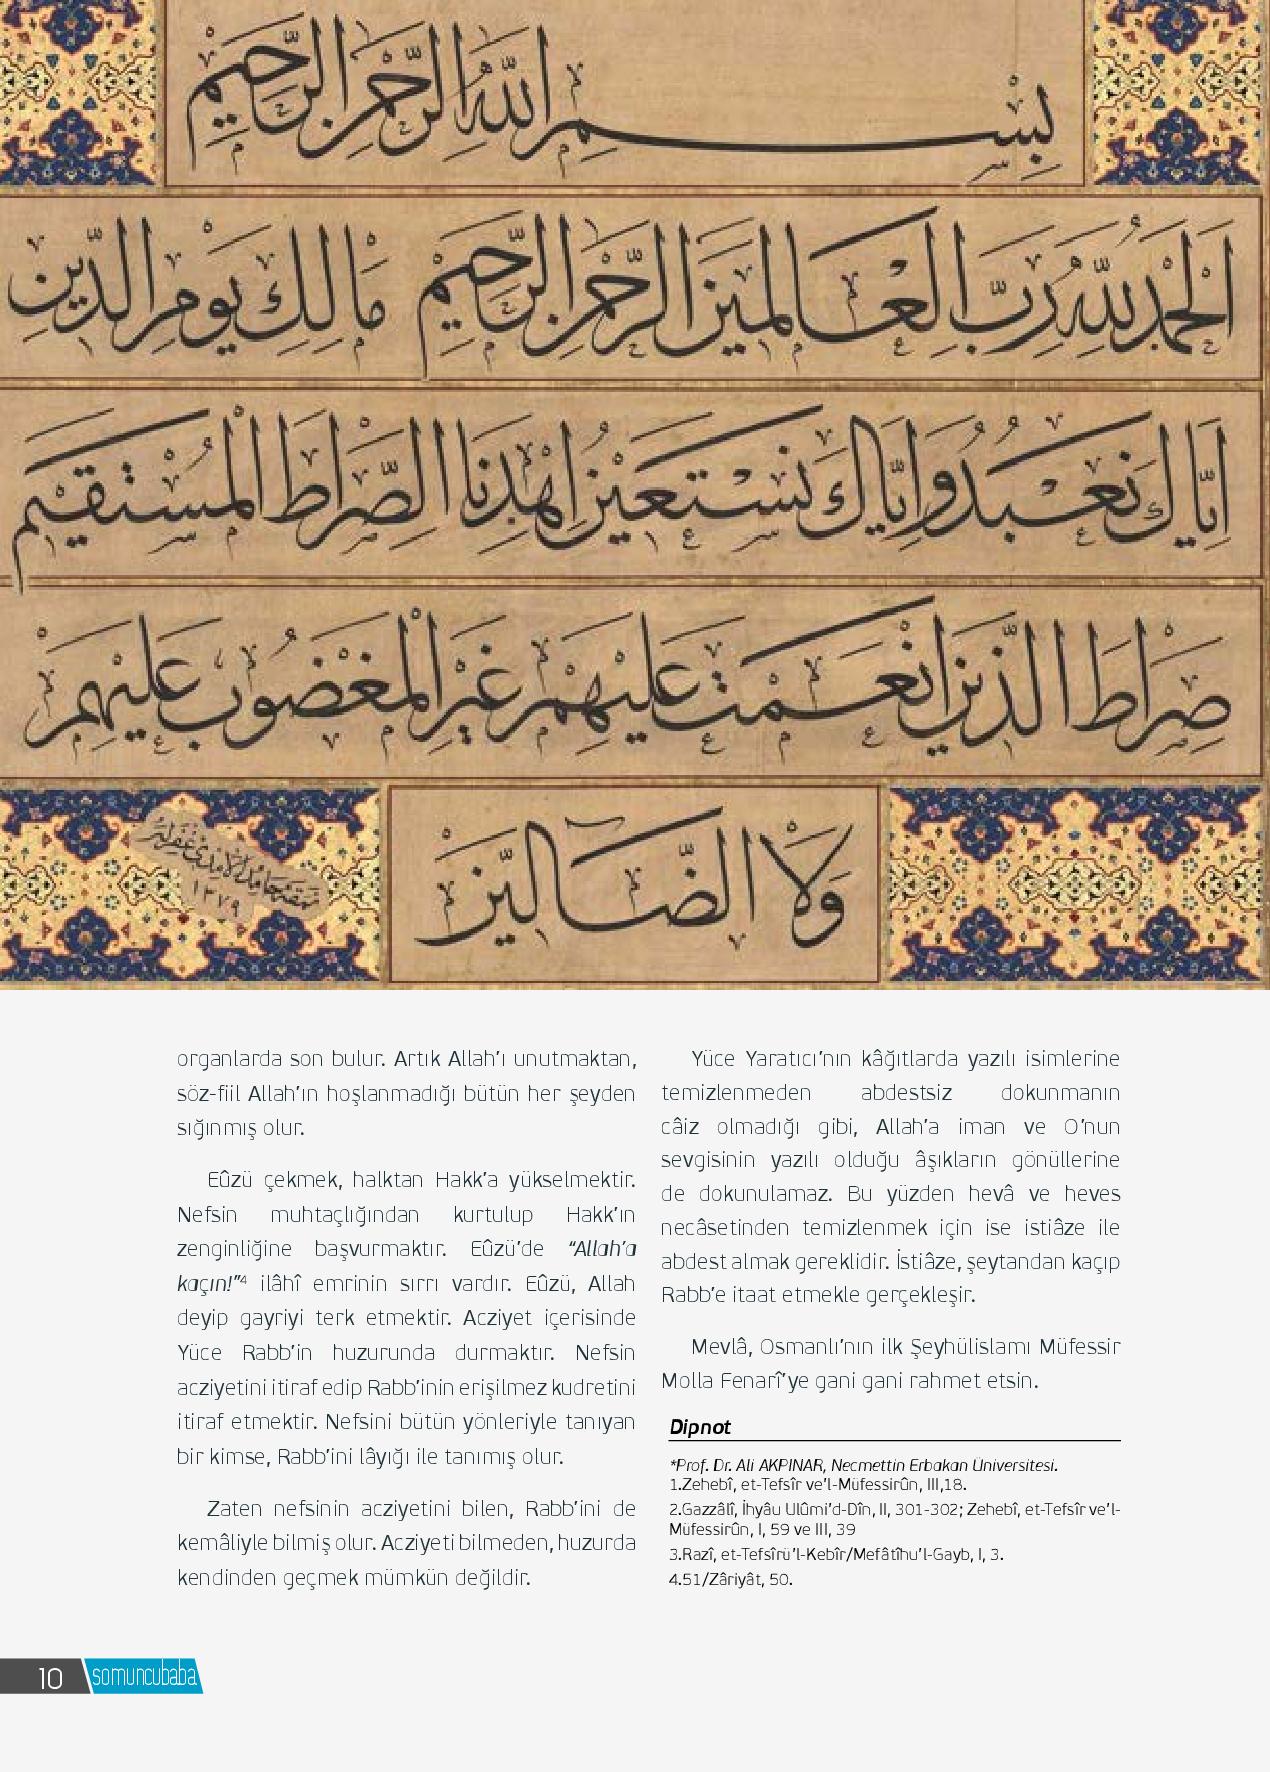 بِسْمِ اللّٰهِ الرَّحْمٰنِ الرَّحِيمِ
اَلْحَمْدُ لِلّٰهِ رَبِّ الْعَالَمِينَ الرَّحْمٰنِ الرَّحِيمِ مَالِكِ يَوْمِ الدِّينِ
اِيَّاكَ نَعْبُدُ وَاِيَّاكَ نَسْتَعِينُ اِهْدِنَا الصِّرَاطَ الْمُسْتَقِيمَ
صِرَاطَ الَّذِينَ اَنْعَمْتَ عَلَيْهِمْ غَيْرِ الْمَغْضُوبِ عَلَيْهِمْ
وَلَا الضَّالِّينَ
١٣٧٩
organlarda son bulur. Artık Allah’ı unutmaktan,
söz-fiil Allah’ın hoşlanmadığı bütün her şeyden
sığınmış olur.
Eûzü çekmek, halktan Hakk’a yükselmektir.
Nefsin muhtaçlığından kurtulup Hakk’ın
zenginliğine başvurmaktır. Eûzü’de “Allah’a
kaçın!”⁴ ilâhî emrinin sırrı vardır. Eûzü, Allah
deyip gayriyi terk etmektir. Acziyet içerisinde
Yüce Rabb’in huzurunda durmaktır. Nefsin
acziyetini itiraf edip Rabb’inin erişilmez kudretini
itiraf etmektir. Nefsini bütün yönleriyle tanıyan
bir kimse, Rabb’ini lâyığı ile tanımış olur.
Zaten nefsinin acziyetini bilen, Rabb’ini de
kemâliyle bilmiş olur. Acziyeti bilmeden, huzurda
kendinden geçmek mümkün değildir.
Yüce Yaratıcı’nın kâğıtlarda yazılı isimlerine
temizlenmeden abdestsiz dokunmanın
câiz olmadığı gibi, Allah’a iman ve O’nun
sevgisinin yazılı olduğu âşıkların gönüllerine
de dokunulamaz. Bu yüzden hevâ ve heves
necâsetinden temizlenmek için ise istiâze ile
abdest almak gereklidir. İstiâze, şeytandan kaçıp
Rabb’e itaat etmekle gerçekleşir.
Mevlâ, Osmanlı’nın ilk Şeyhülislamı Müfessir
Molla Fenarî’ye gani gani rahmet etsin.
Dipnot
*Prof. Dr. Ali AKPINAR, Necmettin Erbakan Üniversitesi.
1.Zehebî, et-Tefsîr ve’l-Müfessirûn, III,18.
2.Gazzâlî, İhyâu Ulûmi’d-Dîn, II, 301-302; Zehebî, et-Tefsîr ve’l-
Müfessirûn, I, 59 ve III, 39
3.Razî, et-Tefsîrü’l-Kebîr/Mefâtîhu’l-Gayb, I, 3.
4.51/Zâriyât, 50.
10 somuncubaba